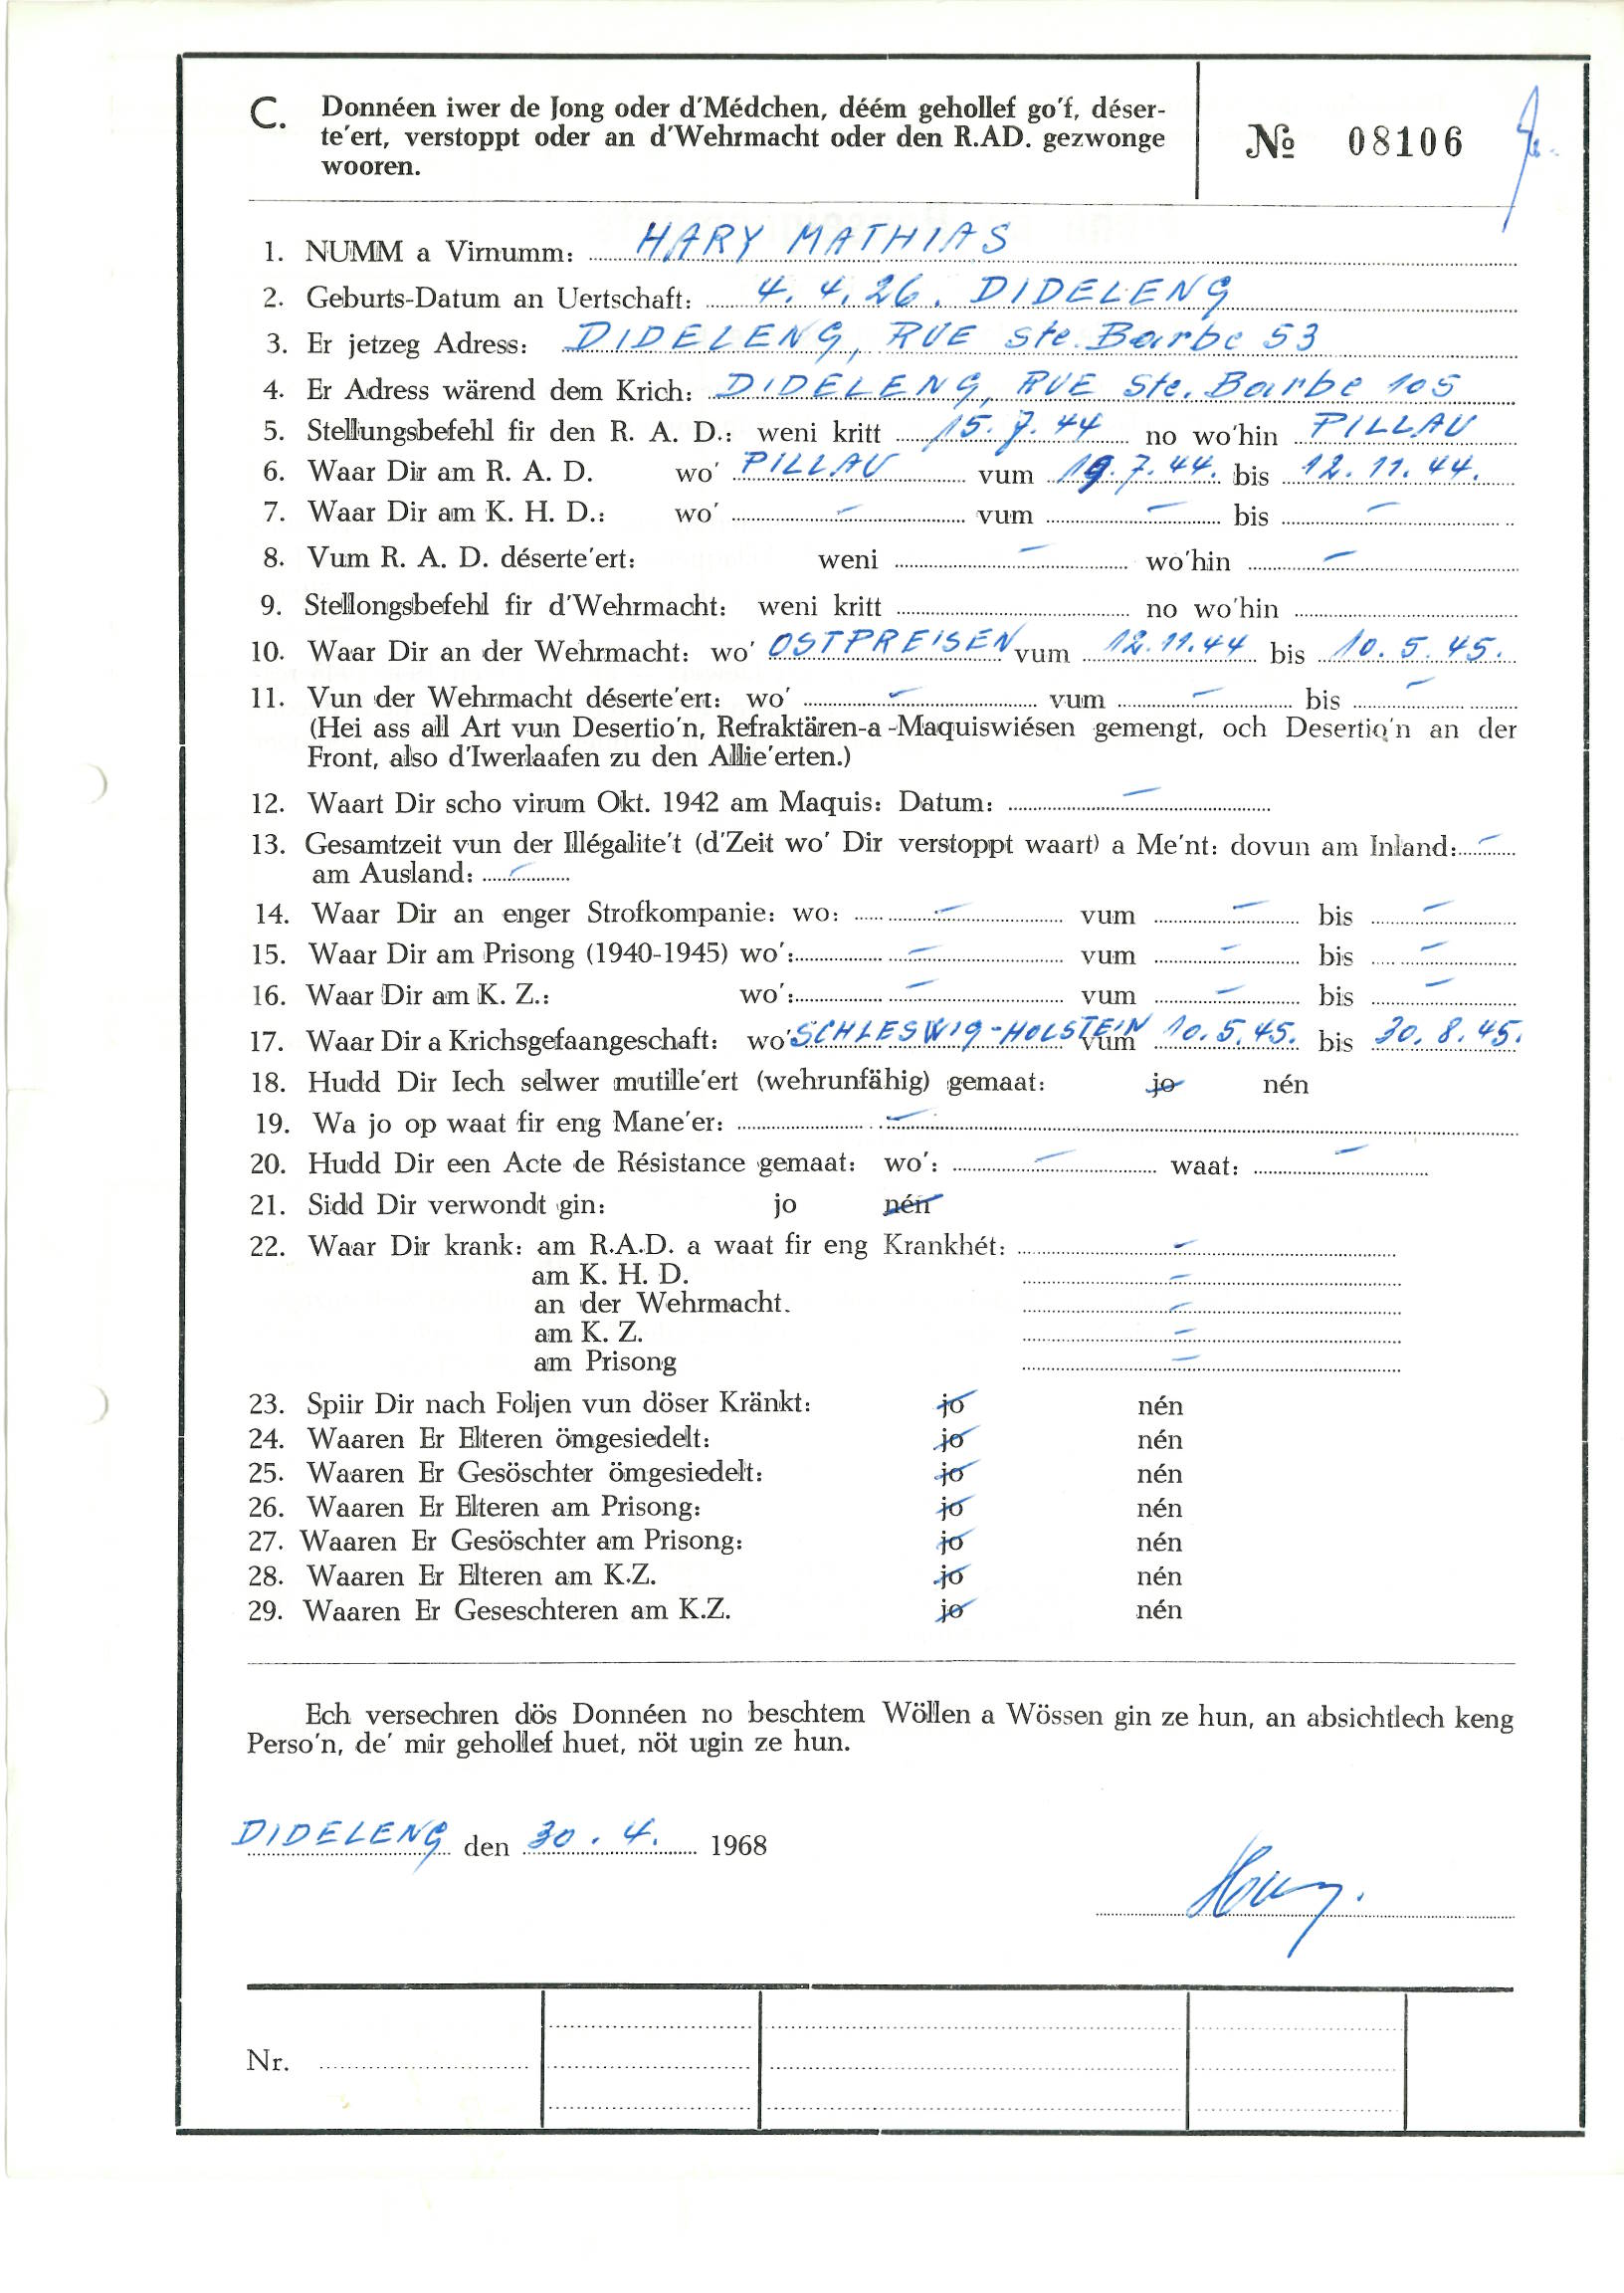 C. Donnéen iwer de Jong oder d'Médchen, déém gehollef go'f, déser-
te'ert, verstoppt oder an d'Wehrmacht oder den R.AD. gezwonge
wooren.
№ 08106
1. NUMM a Virnumm: HARY MATHIAS
2. Geburts-Datum an Uertschaft: 4. 4. 26. DIDELENG
3. Er jetzeg Adress: DIDELENG, RUE Ste. Barbe 53
4. Er Adress wärend dem Krich: DIDELENG, RUE Ste. Barbe 105
5. Stellungsbefehl fir den R. A. D.: weni kritt 15. 7. 44 no wo'hin PILLAU
6. Waar Dir am R. A. D. wo' PILLAU vum 19. 7. 44. bis 12. 11. 44.
7. Waar Dir am K. H. D.: wo' – vum – bis –
8. Vum R. A. D. déserte'ert: weni – wo'hin –
9. Stellongsbefehl fir d'Wehrmacht: weni kritt no wo'hin
10. Waar Dir an der Wehrmacht: wo' OSTPREISEN vum 12. 11. 44 bis 10. 5. 45.
11. Vun der Wehrmacht déserte'ert: wo' – vum – bis –
(Hei ass all Art vun Desertio'n, Refraktären-a-Maquiswiésen gemengt, och Desertio'n an der
Front, also d'Iwerlaafen zu den Allie'erten.)
12. Waart Dir scho virum Okt. 1942 am Maquis: Datum: –
13. Gesamtzeit vun der Illégalite't (d'Zeit wo' Dir verstoppt waart) a Me'nt: dovun am Inland: –
am Ausland: –
14. Waar Dir an enger Strofkompanie: wo: – vum – bis –
15. Waar Dir am Prisong (1940-1945) wo': – vum – bis –
16. Waar Dir am K. Z.: wo': – vum – bis –
17. Waar Dir a Krichsgefaangeschaft: wo' SCHLESWIG-HOLSTEIN vum 10. 5. 45. bis 30. 8. 45.
18. Hudd Dir Iech selwer mutille'ert (wehrunfähig) gemaat: jo nén
19. Wa jo op waat fir eng Mane'er: –
20. Hudd Dir een Acte de Résistance gemaat: wo': – waat: –
21. Sidd Dir verwondt gin: jo nén
22. Waar Dir krank: am R.A.D. a waat fir eng Krankhét: –
am K. H. D. –
an der Wehrmacht. –
am K. Z. –
am Prisong –
23. Spiir Dir nach Foljen vun döser Kränkt: jo nén
24. Waaren Er Elteren ömgesiedelt: jo nén
25. Waaren Er Gesöschter ömgesiedelt: jo nén
26. Waaren Er Elteren am Prisong: jo nén
27. Waaren Er Gesöschter am Prisong: jo nén
28. Waaren Er Elteren am K.Z. jo nén
29. Waaren Er Geseschteren am K.Z. jo nén
Ech versechren dös Donnéen no beschtem Wöllen a Wössen gin ze hun, an absichtlech keng
Perso'n, de' mir gehollef huet, nöt ugin ze hun.
DIDELENG den 30. 4. 1968
Hary.
Nr.